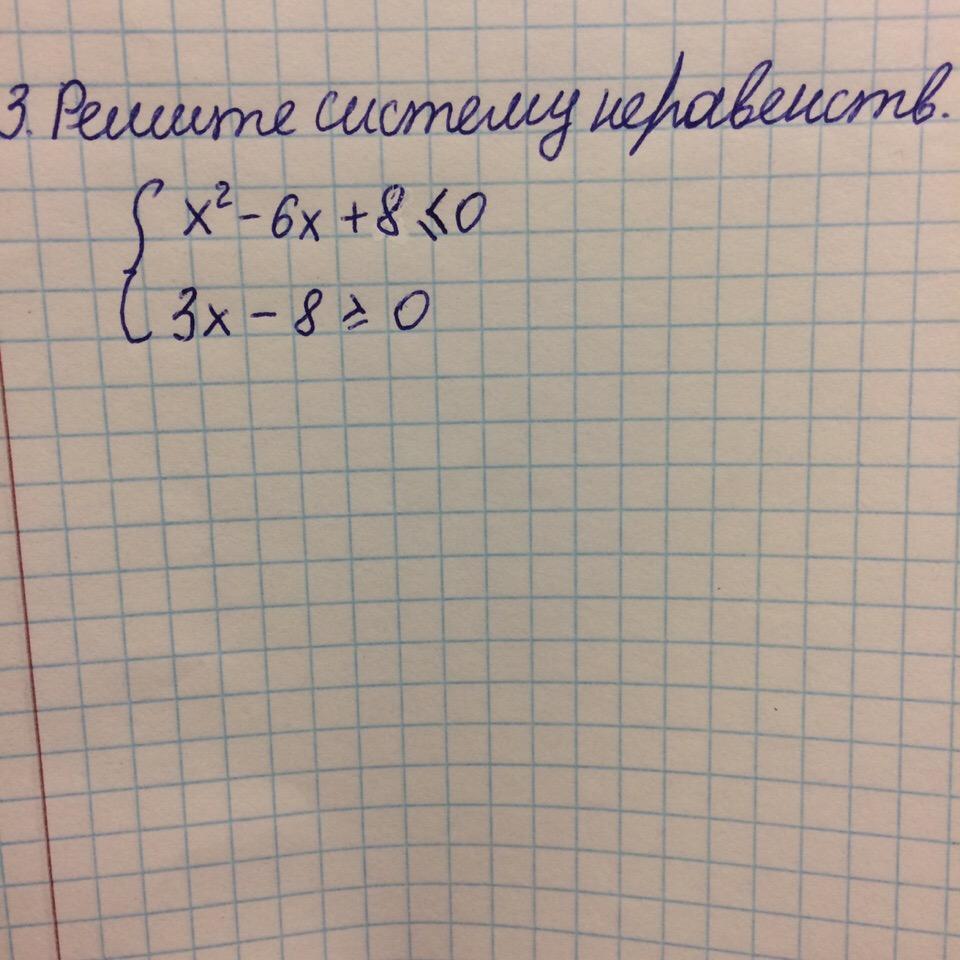 3. Решите систему неравенств.
x² - 6x + 8 ⩽ 0
3x - 8 ⩾ 0